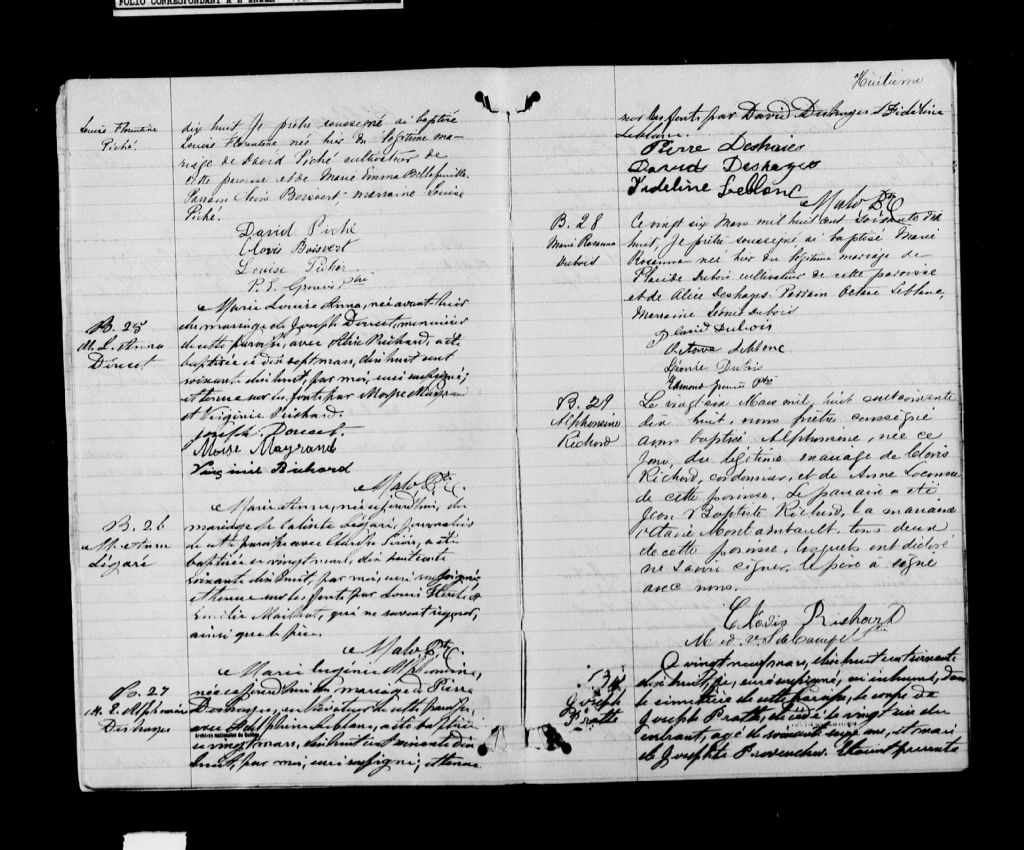 FOLIO CORRESPONDANT A L'INDEX
Louis Florentine
Piché
dix huit Je prêtre soussigné ai baptisé
Louis Florentine née hier du légitime ma-
riage de David Piché cultivateur de
cette paroisse et de Marie Emma Bellefeuille.
Parrain Clovis Boisvert, marraine Louise
Piché.
David Piché
Clovis Boisvert
Louise Picher
Ptre
B. 25
M. L. Anna
Doucet
Marie Louise Anna, née avant hier
du mariage de Joseph Doucet, menuisier
de cette paroisse, avec Prichard, a été
baptisée ce dix sept mars, dix huit cent
soixante dix huit, par moi, curé soussigné;
et tenue sur les fonts par Moyse Mayrand
et Virginie Prichard.
Joseph Doucet.
Moïse Mayrand
Virginie Richard
Malo Ptre C.
B. 26
M. Anna
Légaré
Marie Anne, née aujourd'hui, du
mariage de Calixte Légaré, journalier
de cette paroisse avec , a été
baptisée ce vingt mars, dix huit cent
soixante dix huit, par moi, curé soussigné
et tenue sur les fonts par Louis et
Emilie , qui ne savent signer,
ainsi que le père.
Malo Ptre C.
B. 27
M. E. Alphonsine
Deshayes
Marie Eugénie Alphonsine,
née aujourd'hui du mariage de Pierre
Deshayes, cultivateur de cette paroisse,
avec Adelphine Leblanc, a été baptisée
ce vingt mars, dix huit cent soixante dix
huit, par moi, curé soussigné; et tenue
Archives nationales du Québec
Huitième
sur les fonts par David Deshayes et Fideline
Leblanc.
Pierre Deshaies
David Deshayes
Fideline Leblanc
Malo Ptre C
B. 28
Marie Rosanna
Dubois
Ce vingt six Mars mil huit cent soixante dix
huit, Je prêtre soussigné ai baptisé Marie
Rosanna née hier du légitime mariage de
Placide Dubois cultivateur de cette paroisse
et de Alice Deshayes. Parrain Octave Leblanc,
Marraine Léonie Dubois
Placid Dubois
Octave Leblanc
Léonie Dubois
Ptre
B. 29
Alphonsine
Richard
Le vingt six Mars mil, huit cent soixante
dix huit, nous prêtre soussigné
avons baptisé Alphonsine, née ce
jour, du légitime mariage de Clovis
Richard, cordonnier, et de Anne
de cette paroisse. Le parrain a été
Jean Baptiste Richard, la marraine
Octavie Montambault. tous deux
de cette paroisse, lesquels ont déclaré
ne savoir signer, le père a signé
avec nous.
Clovis Rishard
S 14
Joseph
Pratte
Ce vingt neuf mars, dix huit cent soixante
dix huit, Je, curé soussigné, ai inhumé, dans
le cimetière de cette paroisse, le corps de
Joseph Pratte, décédé le vingt six du
courant, âgé de soixante ans, et mari
de Josephte Provencher. Etaient presents